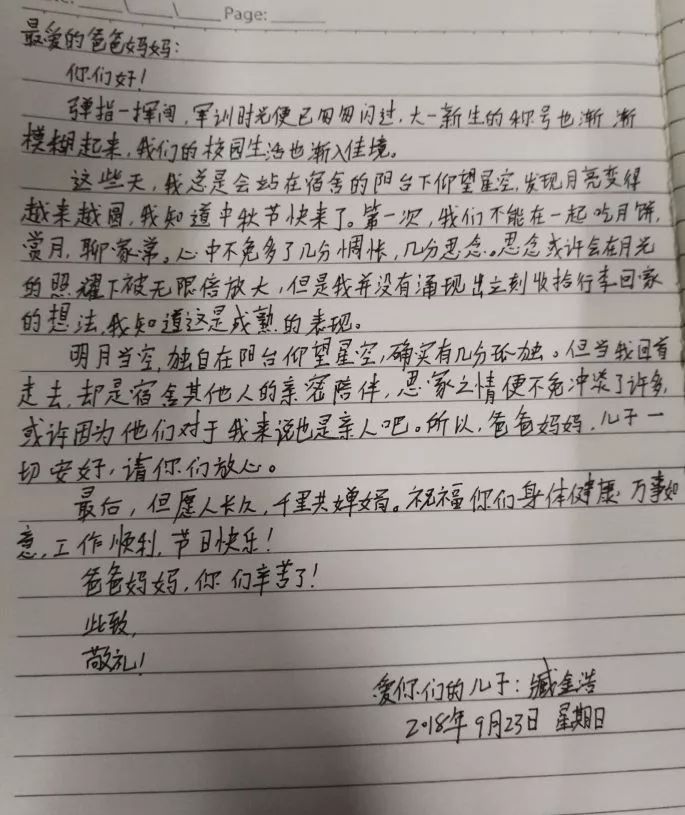 Page:
最爱的爸爸妈妈:
你们好!
弹指一挥间,军训时光便已匆匆闪过,大一新生的称号也渐渐
模糊起来,我们的校园生活也渐入佳境。
这些天,我总是会站在宿舍的阳台下仰望星空,发现月亮变得
越来越圆,我知道中秋节快来了。第一次,我们不能在一起吃月饼,
赏月,聊家常。心中不免多了几分惆怅,几分思念。思念或许会在月光
的照耀下被无限倍放大,但是我并没有涌现出立刻收拾行李回家
的想法,我知道这是成熟的表现。
明月当空,独自在阳台仰望星空,确实有几分孤独。但当我回首
走去,却是宿舍其他人的亲密陪伴,思家之情便不免冲淡了许多,
或许因为他们对于我来说也是亲人吧。所以,爸爸妈妈,儿子一
切安好,请你们放心。
最后,但愿人长久,千里共婵娟。祝福你们身体健康,万事如
意,工作顺利,节日快乐!
爸爸妈妈,你们辛苦了!
此致,
敬礼!
爱你们的儿子:臧金浩
2018年9月23日 星期日